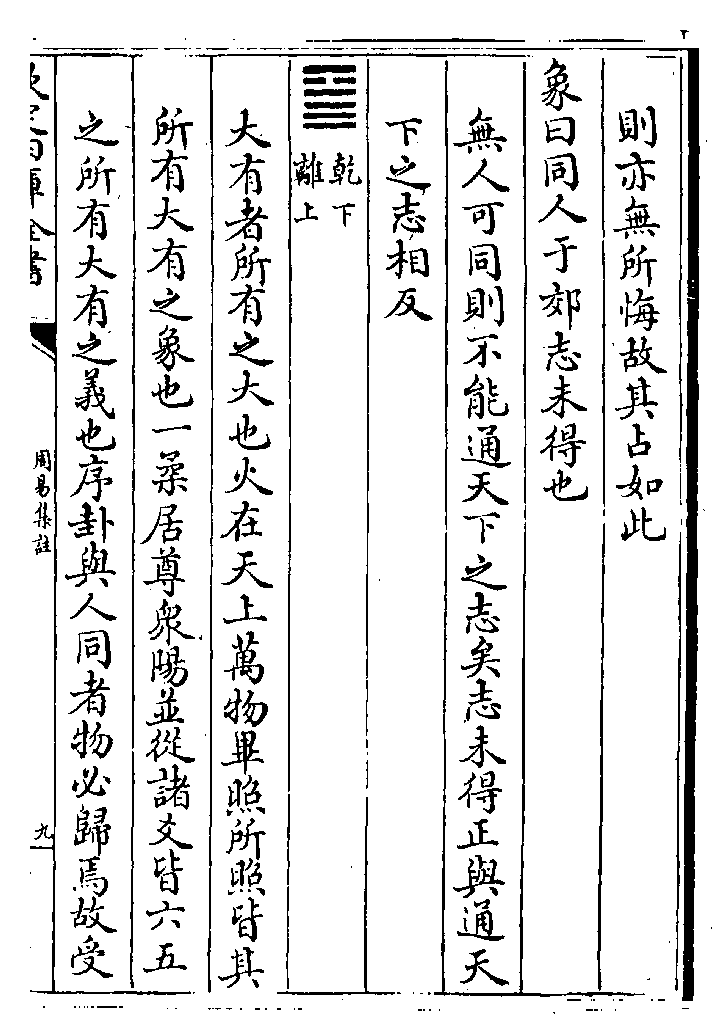 則亦無所悔故其占如此
象曰同人于郊志未得也
無人可同則不能通天下之志矣志未得正與通天
下之志相反
乾下
離上
大有者所有之大也火在天上萬物畢照所照皆其
所有大有之象也一柔居尊衆陽並從諸爻皆六五
之所有大有之義也序卦與人同者物必歸焉故受
欽定四庫全書
周易集註
九